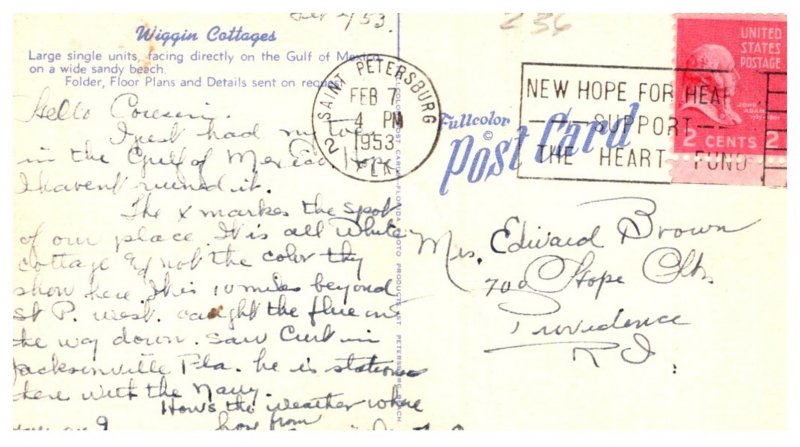 Feb 7/53.
236
Wiggin Cottages
Large single units, facing directly on the Gulf of Mexico
on a wide sandy beach.
Folder, Floor Plans and Details sent on request
Hello Cousin.
I just had my toe
in the Gulf of Mexico. Hope
I haven't ruined it.
The X marks the spot
of our place. It is all White
cottage & not the color they
show here. This 10 miles beyond
St P. west. caught the flue on
the way down. Saw Curt in
Jacksonville Fla. he is stationed
there with the Navy.
How's the weather where
you are?
SAINT PETERSBURG
FEB 7
4 PM
1953
FLA.
2
NEW HOPE FOR HEAR
SUPPORT
THE HEART FUND
UNITED
STATES
POSTAGE
JOHN ADAMS
2 CENTS 2
Fullcolor
©
Post Card
Mrs. Edward Brown
700 Hope Str.
Providence
R I.